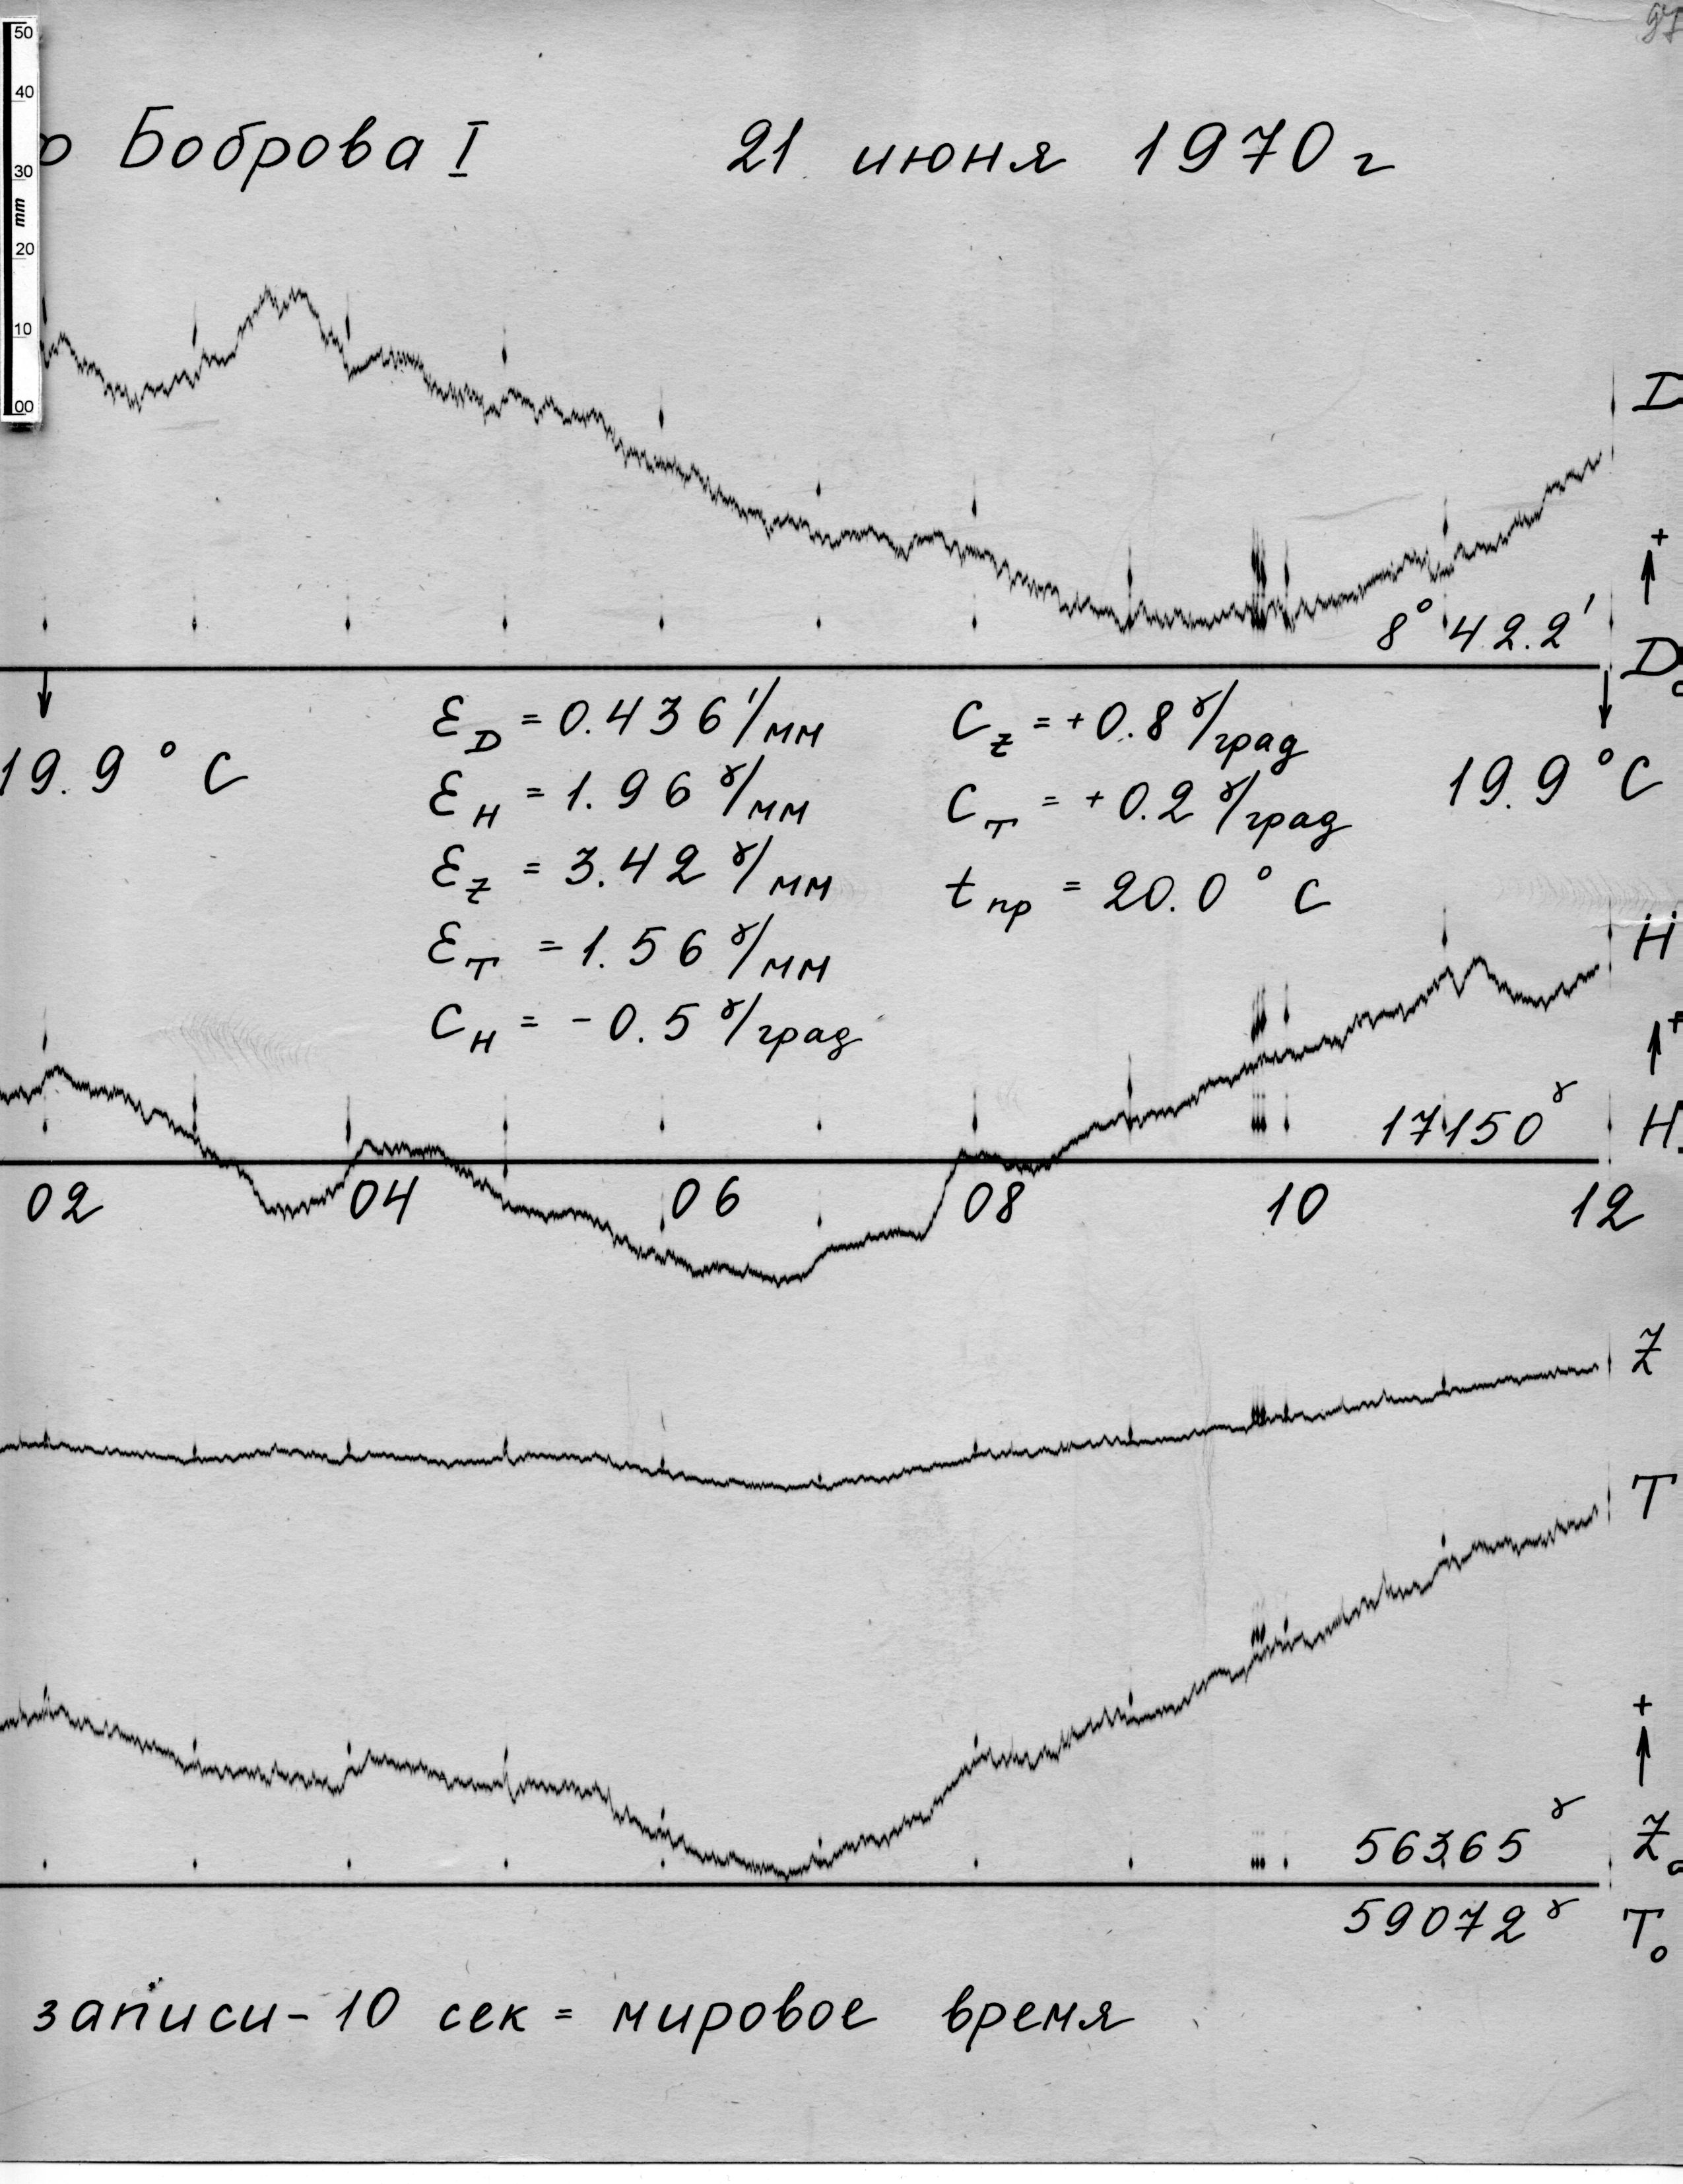 50
40
30
mm
20
10
00
о Боброва I 21 июня 1970 г
D
+
8° 42.2′
D₀
19.9 °C
ε_D = 0.436′/мм
ε_H = 1.96 γ/мм
ε_Z = 3.42 γ/мм
ε_T = 1.56 γ/мм
C_H = -0.5 γ/град
C_Z = +0.8 γ/град
C_T = +0.2 γ/град
t пр = 20.0 °C
19.9 °C
H
+
17150 γ
H
02 04 06 08 10 12
Z
T
+
56365 γ
Z₀
59072 γ
T₀
записи - 10 сек = мировое время